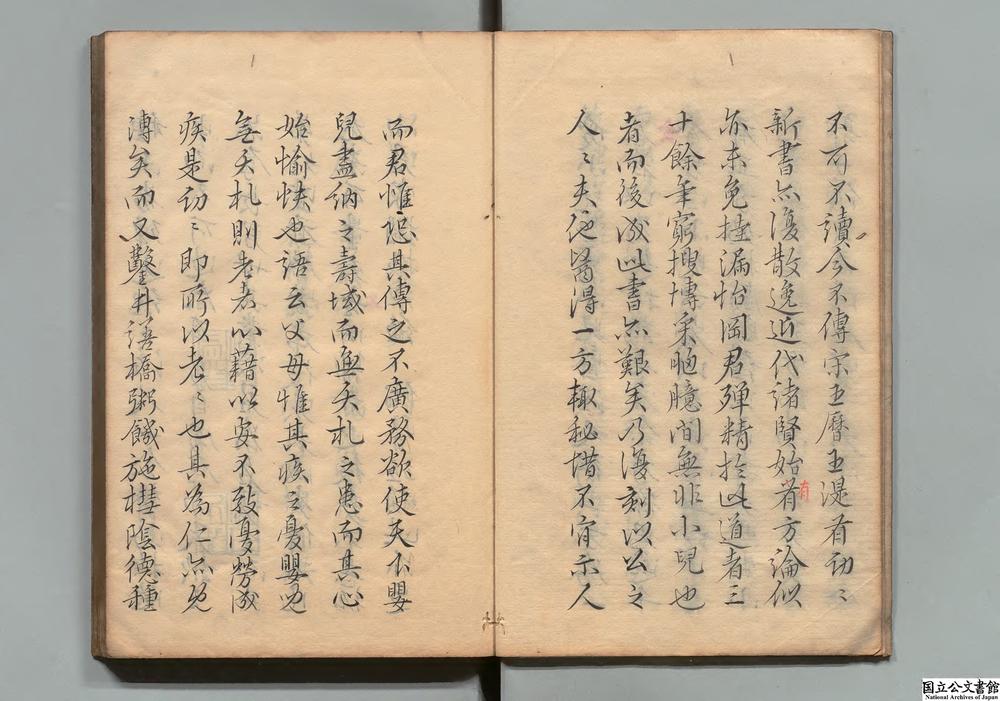 不可不讀今不傳宋王曆王湜有幼〻
新書亦復散逸近代諸賢始有方論似
亦未免挂漏怡岡君殫精於此道者三
十餘年窮搜博采胸臆間無非小兒也
者而後成此書亦艱矣乃復刻以公之
人〻夫他醫得一方輙秘惜不肯示人
有
而君惟恐其傳之不廣務欲使天下嬰
兒盡納之壽域而無夭札之患而其心
始愉快也語云父母惟其疾之憂嬰兒
無夭札則老老以藉以安不致憂勞成
疾是幼〻即所以老〻也其為仁亦已
溥矣而又鑿井諾橋粥餓施槥陰德種
国立公文書館
National Archives of Japan